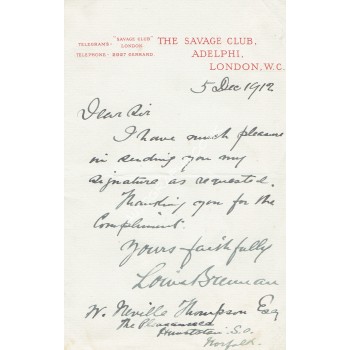 "SAVAGE CLUB"
TELEGRAMS:- LONDON
TELEPHONE:- 8287 GERRARD.
THE SAVAGE CLUB,
ADELPHI,
LONDON, W.C.
5 Dec 1912
Dear Sir
I have much pleasure
in sending you my
signature as requested.
Thanking you for the
Compliment.
Yours faithfully
Louis Brennan
W. Neville Thompson Esq
The
Hunstanton. S.O.
Norfolk.